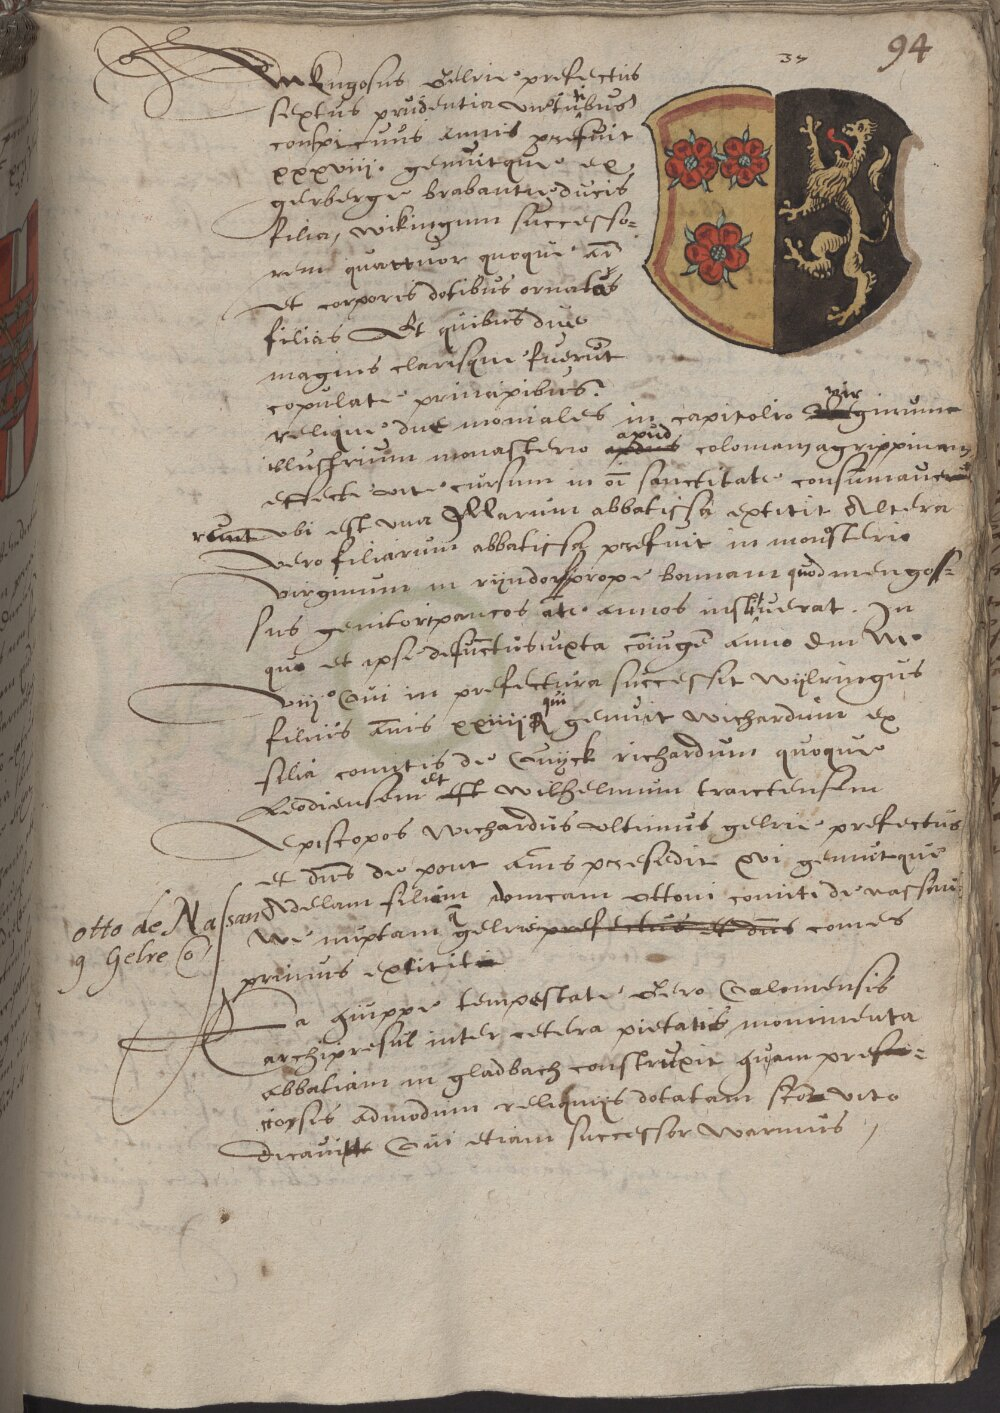 37
94
Mengosus Gelrie prefectus
sextus prudentia virtutibus
conspicuus annis prefuit
xxxviij. genuitque ex
gerberge brabantie ducis
filia, wikingum successo-
rem quattuor quoque ani
et corporis dotibus ornatas
filias Et quibus due
magnis clarisque fuerunt
copulate principibus.
relique due moniales in capitolio virginum
illustrium monasterio apud coloniam agrippinam
effecte vite cursum in oi sanctitate consummaue
runt ubi est una Illarum abbatissa extitit Altera
vero filiarum abbatissa prefuit in monsterio
virginum in rijndorff prope bonnam quod mengos-
sus genitor pancos ante annos instituerat. In
quo et ipse defunctus iuxta coiuge anno dm Mo
viijo Cui in prefectura successit wijkingus
filius annis xxiiij qui genuit wichardum ex
filia comitis de Cuijck richardum quoque
Leodiensem et wilhelmum traiectensem
episcopos wichardus ultimus gelrie prefectus
et dns de pont annis presedit xvi genuitque
Adelam filiam vnicam ottoni comiti de nassau-
we nuptam gelrie prefectus et dns comes
primus extitit
otto de Nassau
9 Gelre Co
Ea quippe tempestate Gero Coloniensis
archipresul inter cetera pietatis monimenta
abbatiam in gladbach construxit quam
admodum reliquijs dotatam sto vito
dicauit Cui etiam successor warinus,